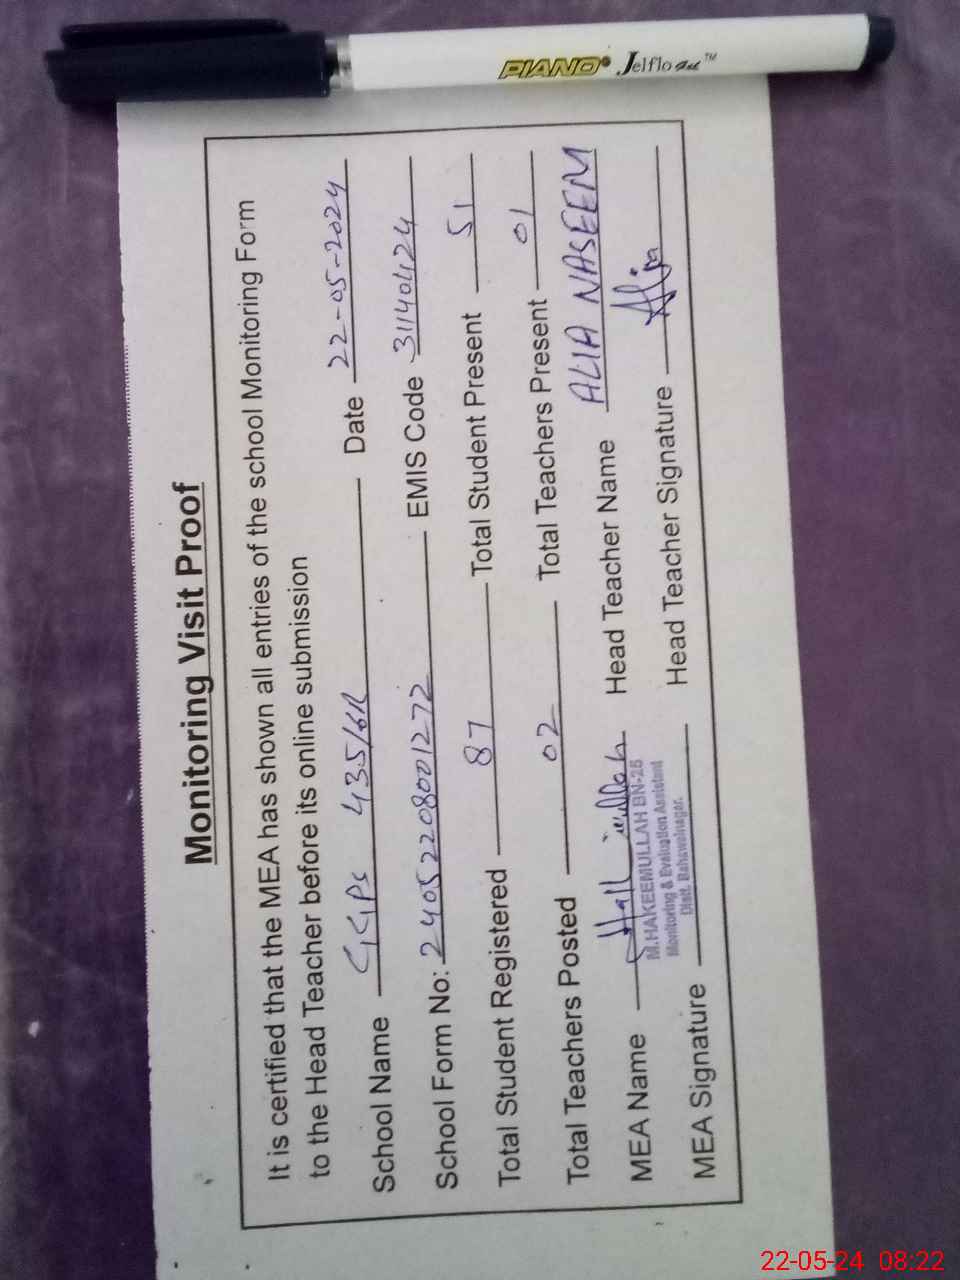 PIANO® Jelflo Gel™
Monitoring Visit Proof
It is certified that the MEA has shown all entries of the school Monitoring Form
to the Head Teacher before its online submission
School Name GGPS 435/6R Date 22-05-2024
School Form No: 240522080012 72 EMIS Code 31140424
Total Student Registered 87 Total Student Present 51
Total Teachers Posted 02 Total Teachers Present 01
MEA Name Head Teacher Name ALIA NASEEM
M.HAKEEMULLAH BN-25
Monitoring & Evaluation Assistant
Distt. Bahawalnagar.
MEA Signature Head Teacher Signature Alia
22-05-24 08:22